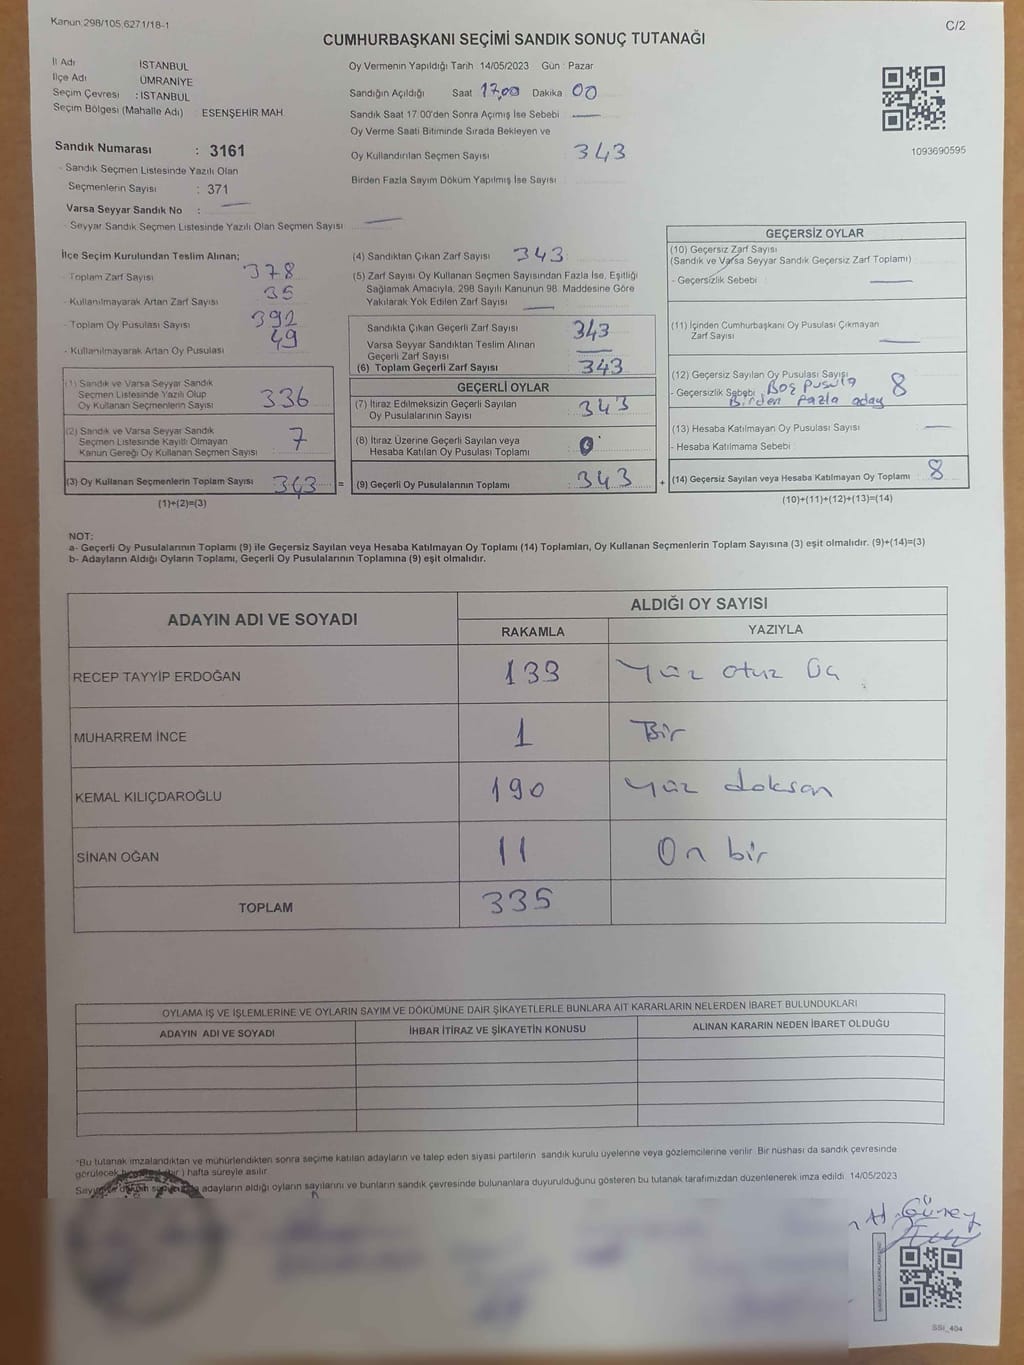 Kanun:298/105,6271/18-1
C/2
CUMHURBAŞKANI SEÇİMİ SANDIK SONUÇ TUTANAĞI
İl Adı İSTANBUL
İlçe Adı ÜMRANİYE
Seçim Çevresi : İSTANBUL
Seçim Bölgesi (Mahalle Adı) ESENŞEHİR MAH
Sandık Numarası : 3161
- Sandık Seçmen Listesinde Yazılı Olan
Seçmenlerin Sayısı : 371
Varsa Seyyar Sandık No :
- Seyyar Sandık Seçmen Listesinde Yazılı Olan Seçmen Sayısı
Oy Vermenin Yapıldığı Tarih 14/05/2023 Gün : Pazar
Sandığın Açıldığı Saat 17,00 Dakika 00
Sandık Saat 17:00'den Sonra Açımış İse Sebebi
Oy Verme Saati Bitiminde Sırada Bekleyen ve
Oy Kullandırılan Seçmen Sayısı 343
Birden Fazla Sayım Döküm Yapılmış İse Sayısı
1093690595
İlçe Seçim Kurulundan Teslim Alınan;
- Toplam Zarf Sayısı 378
- Kullanılmayarak Artan Zarf Sayısı 35
- Toplam Oy Pusulası Sayısı 392
- Kullanılmayarak Artan Oy Pusulası 49
(1) Sandık ve Varsa Seyyar Sandık
Seçmen Listesinde Yazılı Olup
Oy Kullanan Seçmenlerin Sayısı 336
(2) Sandık ve Varsa Seyyar Sandık
Seçmen Listesinde Kayıtlı Olmayan
Kanun Gereği Oy Kullanan Seçmen Sayısı 7
(3) Oy Kullanan Seçmenlerin Toplam Sayısı 343 =
(1)+(2)=(3)
(4) Sandıktan Çıkan Zarf Sayısı 343
(5) Zarf Sayısı Oy Kullanan Seçmen Sayısından Fazla İse, Eşitliği
Sağlamak Amacıyla, 298 Sayılı Kanunun 98. Maddesine Göre
Yakılarak Yok Edilen Zarf Sayısı
Sandıkta Çıkan Geçerli Zarf Sayısı 343
Varsa Seyyar Sandıktan Teslim Alınan
Geçerli Zarf Sayısı
(6) Toplam Geçerli Zarf Sayısı 343
GEÇERLİ OYLAR
(7) İtiraz Edilmeksizin Geçerli Sayılan
Oy Pusulalarının Sayısı 343
(8) İtiraz Üzerine Geçerli Sayılan veya
Hesaba Katılan Oy Pusulası Toplamı 0
(9) Geçerli Oy Pusulalarının Toplamı 343 +
GEÇERSİZ OYLAR
(10) Geçersiz Zarf Sayısı
(Sandık ve Varsa Seyyar Sandık Geçersiz Zarf Toplamı)
- Geçersizlik Sebebi
(11) İçinden Cumhurbaşkanı Oy Pusulası Çıkmayan
Zarf Sayısı
(12) Geçersiz Sayılan Oy Pusulası Sayısı 8
- Geçersizlik Sebebi Boş Pusula
Birden fazla aday
(13) Hesaba Katılmayan Oy Pusulası Sayısı
- Hesaba Katılmama Sebebi
(14) Geçersiz Sayılan veya Hesaba Katılmayan Oy Toplamı 8
(10)+(11)+(12)+(13)=(14)
NOT:
a- Geçerli Oy Pusulalarının Toplamı (9) ile Geçersiz Sayılan veya Hesaba Katılmayan Oy Toplamı (14) Toplamları, Oy Kullanan Seçmenlerin Toplam Sayısına (3) eşit olmalıdır. (9)+(14)=(3)
b- Adayların Aldığı Oyların Toplamı, Geçerli Oy Pusulalarının Toplamına (9) eşit olmalıdır.
ADAYIN ADI VE SOYADI
ALDIĞI OY SAYISI
RAKAMLA YAZIYLA
RECEP TAYYİP ERDOĞAN 133 Yüz otuz Üç
MUHARREM İNCE 1 Bir
KEMAL KILIÇDAROĞLU 190 Yüz doksan
SİNAN OĞAN 11 On bir
TOPLAM 335
OYLAMA İŞ VE İŞLEMLERİNE VE OYLARIN SAYIM VE DÖKÜMÜNE DAİR ŞİKAYETLERLE BUNLARA AİT KARARLARIN NELERDEN İBARET BULUNDUKLARI
ADAYIN ADI VE SOYADI İHBAR İTİRAZ VE ŞİKAYETİN KONUSU ALINAN KARARIN NEDEN İBARET OLDUĞU
"Bu tutanak imzalandıktan ve mühürlendikten sonra seçime katılan adayların ve talep eden siyasi partilerin sandık kurulu üyelerine veya gözlemcilerine verilir. Bir nüshası da sandık çevresinde
görülecek bir ) hafta süreyle asılır.
adayların aldığı oyların sayılarını ve bunların sandık çevresinde bulunanlara duyurulduğunu gösteren bu tutanak tarafımızdan düzenlenerek imza edildi. 14/05/2023
H. Güney
SSI_404